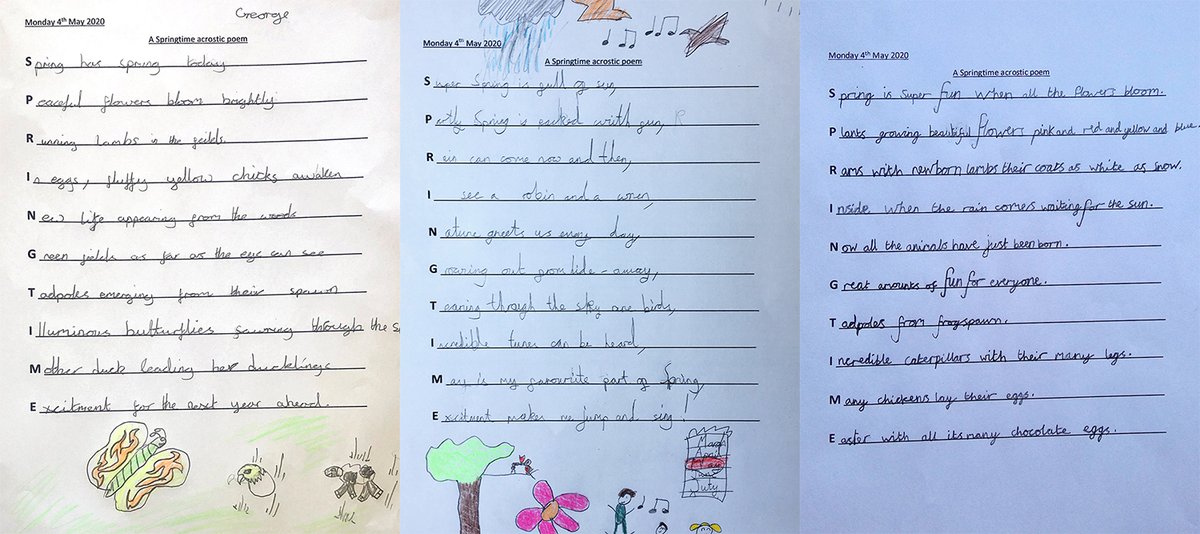 George
Monday 4th May 2020
A Springtime acrostic poem
Spring has spring today
Peaceful flowers bloom brightly
Running lambs in the feilds.
In eggs, fluffy yellow chicks awaken
New life appearing from the woods
Green fields as far as the eye can see
Tadpoles emerging from their spawn
Illuminous butturflies sawring through the s
Mother duck leading her ducklings
Excitment for the next year ahead.
Monday 4th May 2020
A Springtime acrostic poem
Super Spring is full of sun,
Partly Spring is packed with fun,
Rain can come now and then,
I see a robin and a wren,
Nature greets us every day,
Groaring out from hide-away,
Tearing through the sky are birds,
Incredible tunes can be heard,
May is my favourite part of Spring,
Excitment makes me jump and sing!
March
April
May
June
July
Monday 4th May 2020
A Springtime acrostic poem
Spring is super fun when all the flowers bloom.
Plants growing beautiful flowers pink and red and yellow and blue.
Rams with newborn lambs their coats as white as snow.
Inside when the rain comes waiting for the sun.
Now all the animals have just been born.
Great amounts of fun for everyone.
Tadpoles from frogspawn.
Incredible caterpillars with their many legs.
Many chickens lay their eggs.
Easter with all its many chocolate eggs.